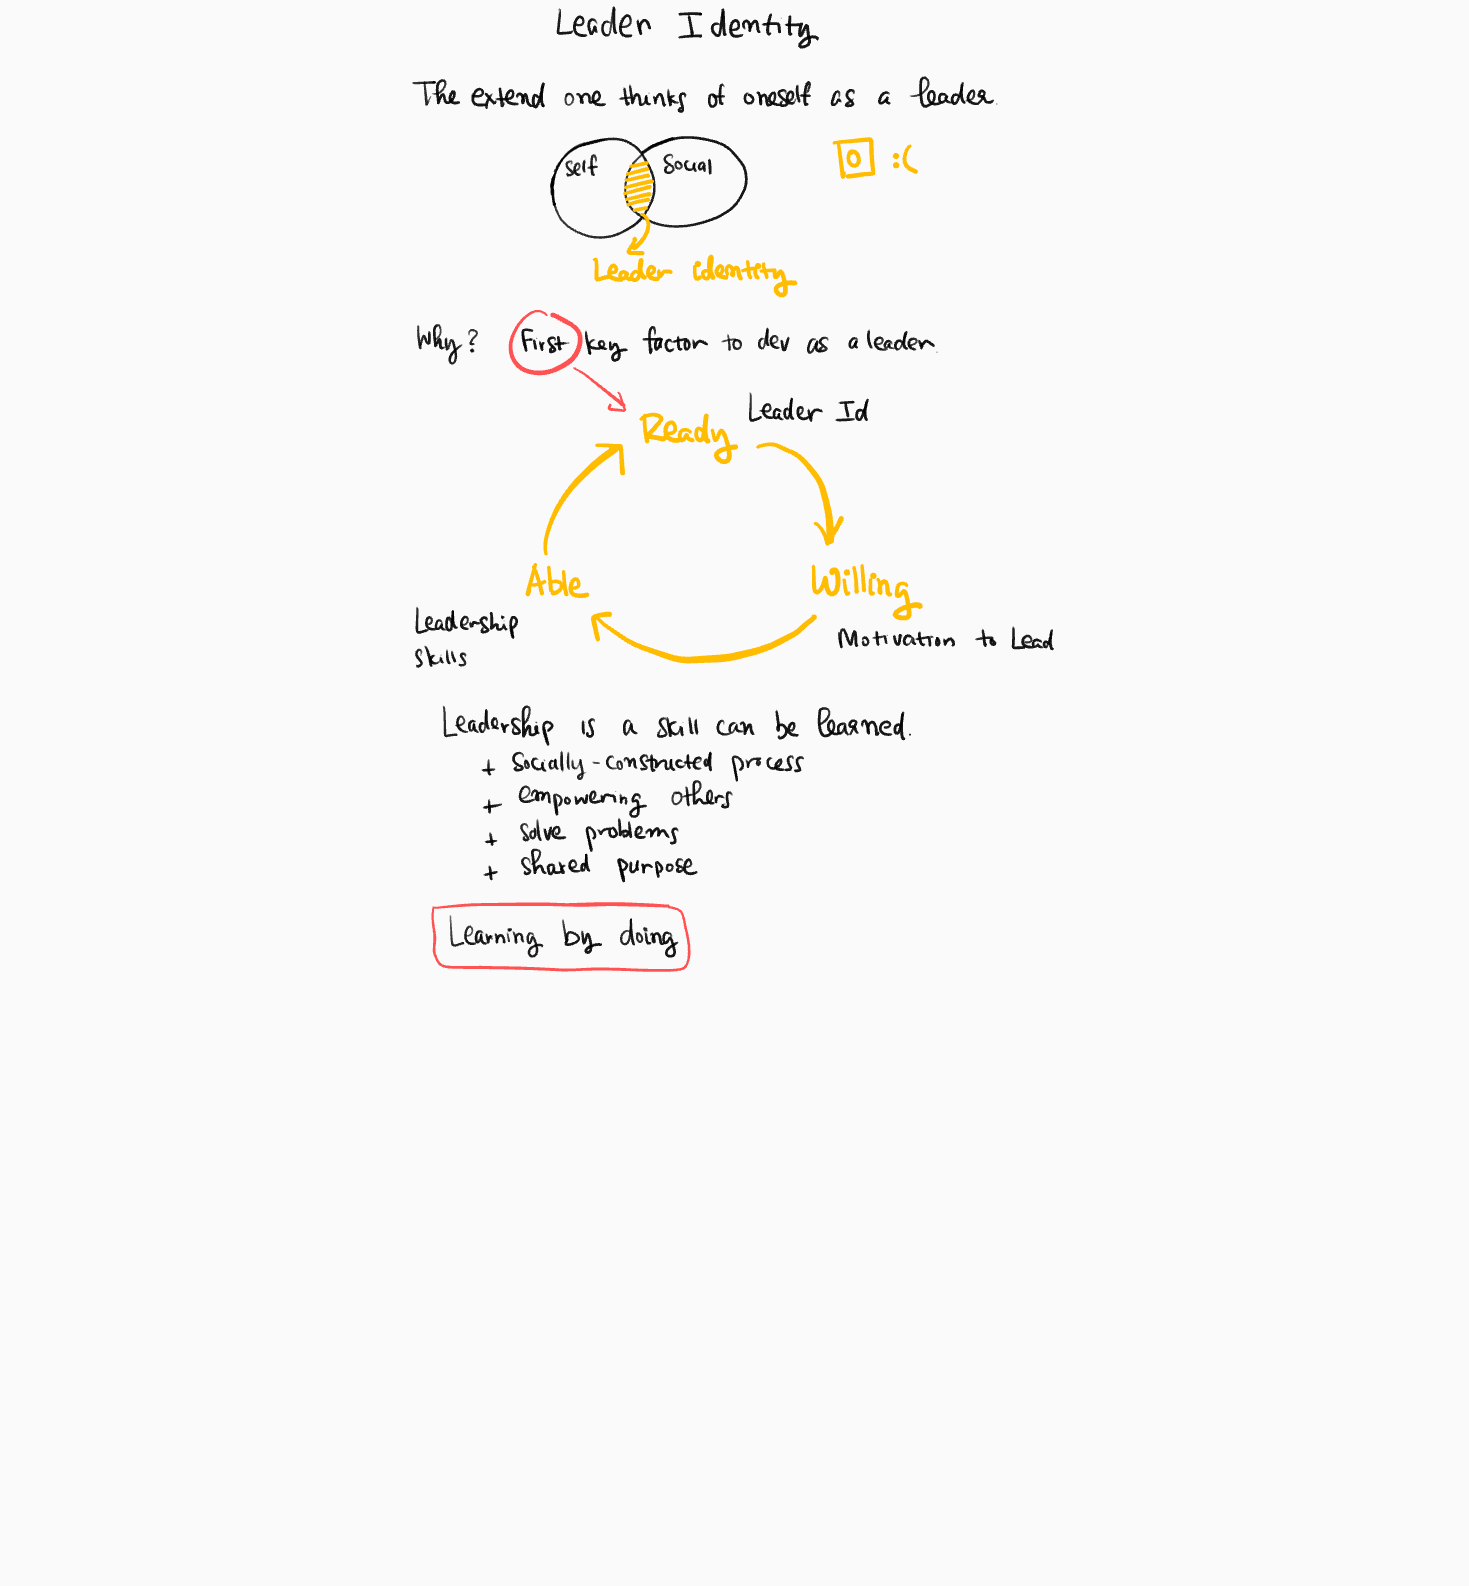 Leader Identity
The extend one thinks of oneself as a leader.
Self Social
0 :(
Leader identity
Why? First key factor to dev as a leader.
Leader Id
Ready
Able
Willing
Leadership
Skills
Motivation to Lead
Leadership is a skill can be learned.
+ Socially-constructed process
+ empowering others
+ solve problems
+ shared purpose
Learning by doing